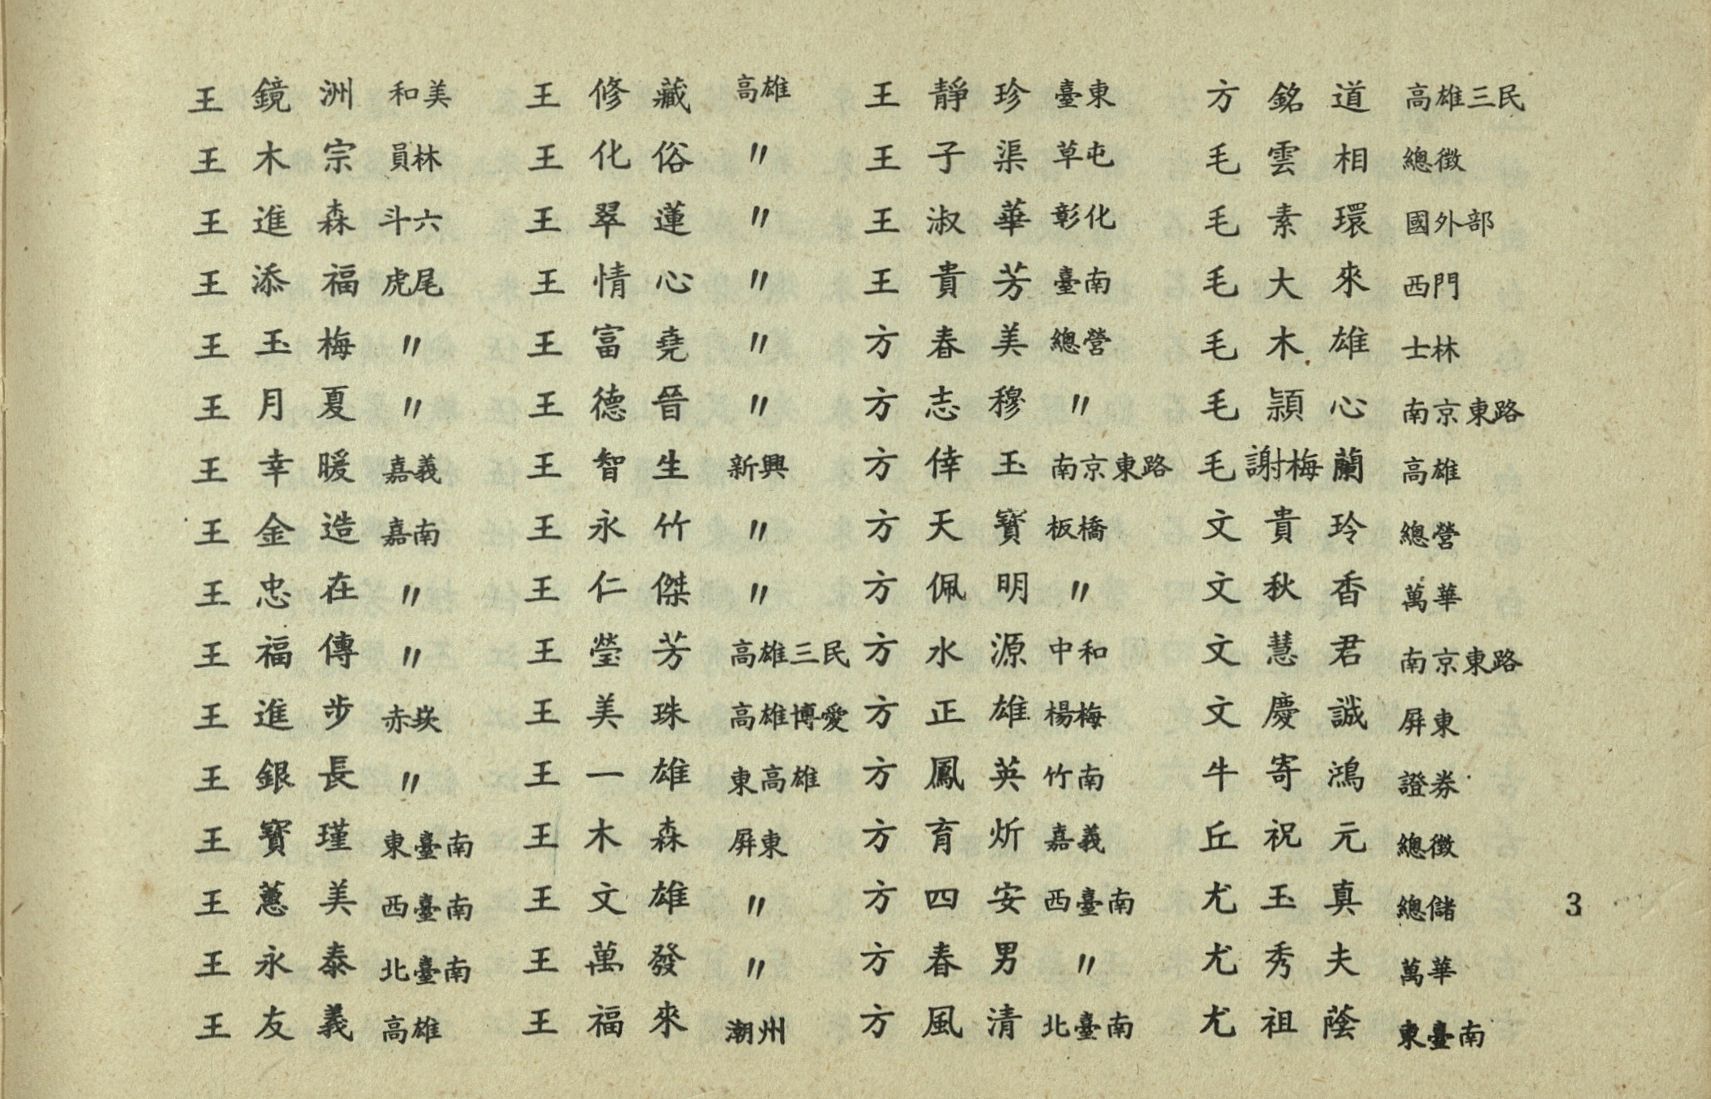 王鏡洲 和美 王修藏 高雄 王靜珍 臺東 方銘道 高雄三民
王木宗 員林 王化俗 〃 王子渠 草屯 毛雲相 總徵
王進森 斗六 王翠蓮 〃 王淑華 彰化 毛素環 國外部
王添福 虎尾 王情心 〃 王貴芳 臺南 毛大來 西門
王玉梅 〃 王富堯 〃 方春美 總營 毛木雄 士林
王月夏 〃 王德晉 〃 方志穆 〃 毛頴心 南京東路
王幸暖 嘉義 王智生 新興 方倖玉 南京東路 毛謝梅蘭 高雄
王金造 嘉南 王永竹 〃 方天寶 板橋 文貴玲 總營
王忠在 〃 王仁傑 〃 方佩明 〃 文秋香 萬華
王福傳 〃 王瑩芳 高雄三民 方水源 中和 文慧君 南京東路
王進步 赤崁 王美珠 高雄博愛 方正雄 楊梅 文慶誠 屏東
王銀長 〃 王一雄 東高雄 方鳳英 竹南 牛寄鴻 證券
王寶瑾 東臺南 王木森 屏東 方育炘 嘉義 丘祝元 總徵
王蕙美 西臺南 王文雄 〃 方四安 西臺南 尤玉真 總儲
王永泰 北臺南 王萬發 〃 方春男 〃 尤秀夫 萬華
王友義 高雄 王福來 潮州 方風清 北臺南 尤祖蔭 東臺南
3